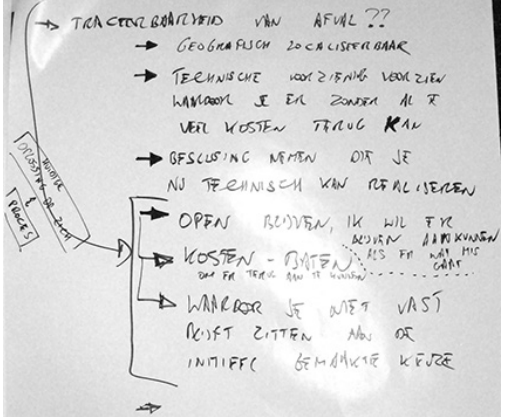 → TRACEERBAARHEID VAN AFVAL ??
→ GEOGRAFISCH LOCALISEERBAAR
→ TECHNISCHE VOORZIENING VOORZIEN
WAARDOOR JE ER ZONDER AL TE
VEEL KOSTEN TERUG KAN
→ BESLISSING NEMEN DIE JE
NU TECHNISCH KAN REALISEREN
→ OPEN BLIJVEN, IK WIL ER
BLIJVEN AANKUNNEN
ALS ER WAT MIS
GAAT
→ KOSTEN - BATEN
OM ER TERUG AAN TE KUNNEN
→ WAARDOOR JE NIET VAST
BLIJFT ZITTEN AAN DE
INITIEEL GEMAAKTE KEUZE
OPLOSSING OP ZICH
&
PROCES